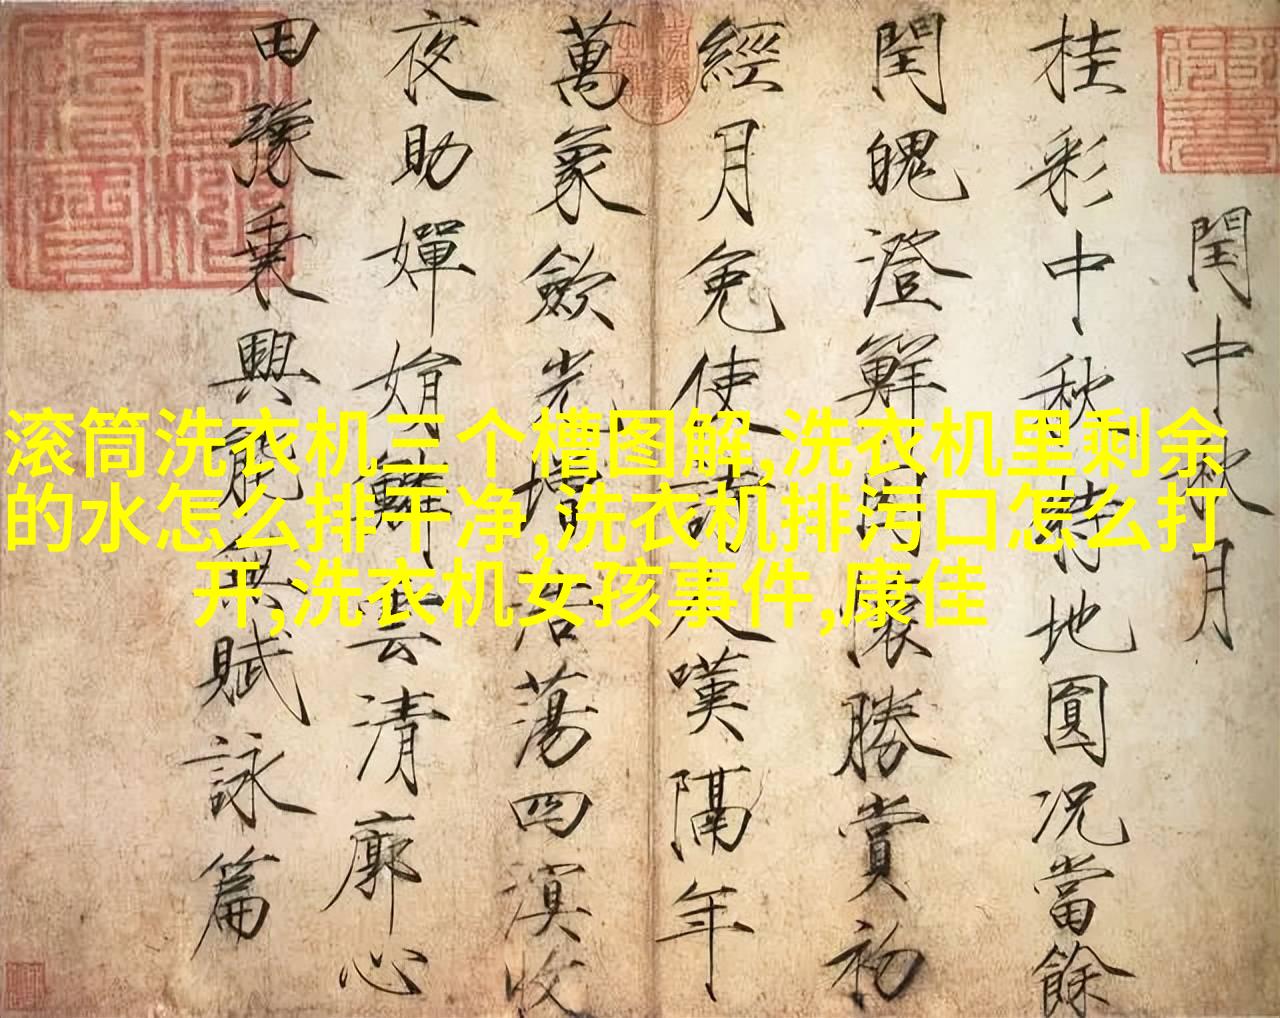 閏中秋月
桂彩中秋特地圓況當餘
閏魄澄鮮因懷勝賞初
經月免使詩人嘆隔年
萬象歛光增浩蕩四溟收
夜助嬋娟鱗雲清廓心
田豫乗興能無賦詠篇
滚筒洗衣机三个槽图解,洗衣机里剩余
的水怎么排干净,洗衣机排污口怎么打
开,洗衣机女孩事件,康佳